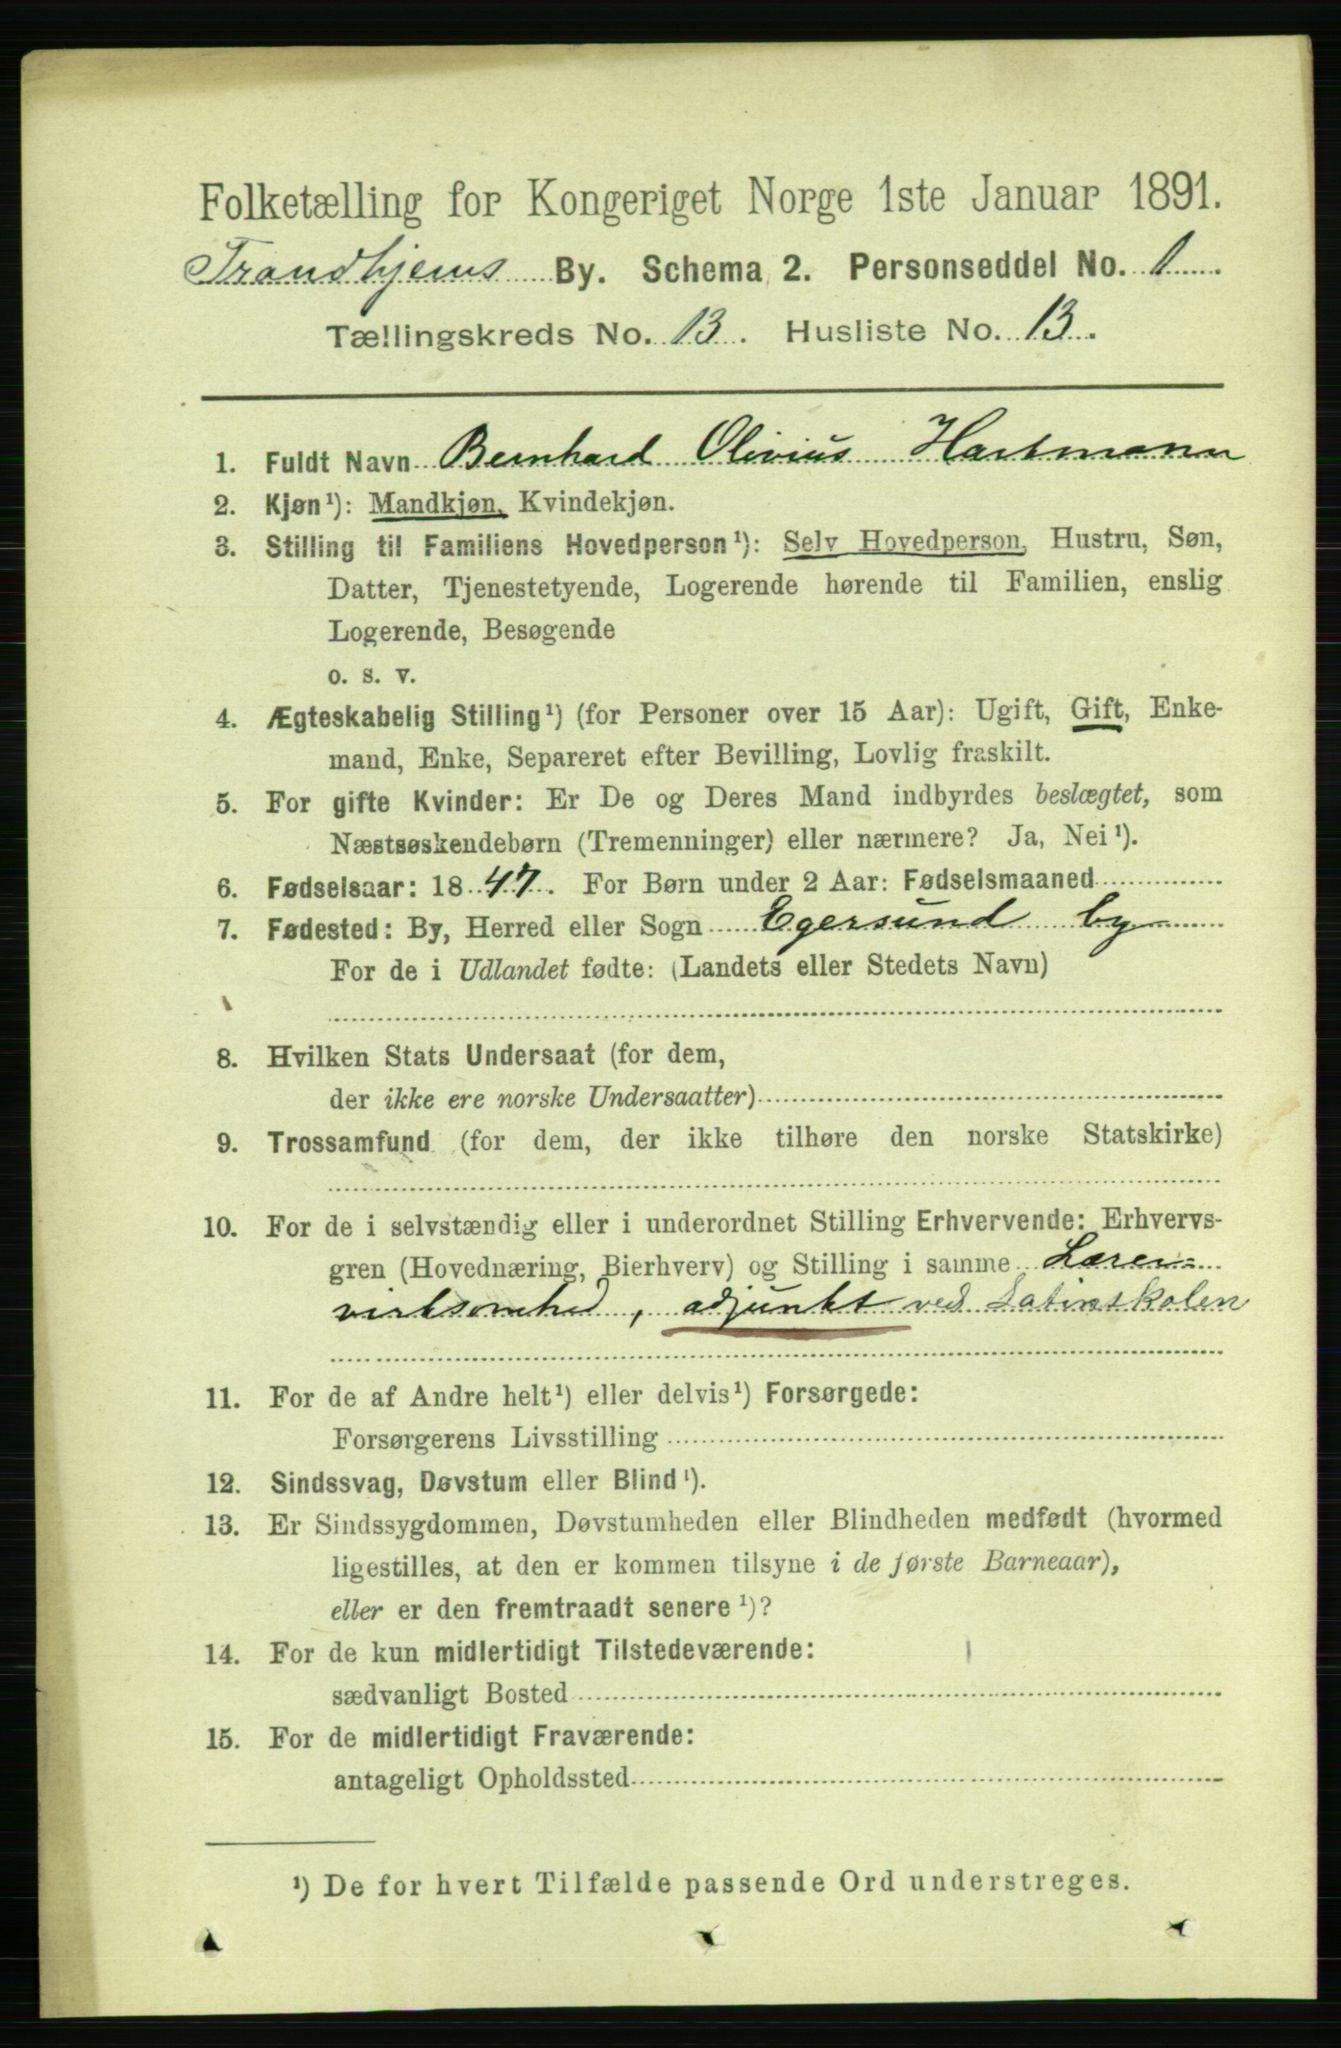 Folketælling for Kongeriget Norge 1ste Januar 1891.
Trondhjems By. Schema 2. Personseddel No. 1
Tællingskreds No. 13. Husliste No. 13.
1. Fuldt Navn Bernhard Olivius Hartmann
2. Kjøn¹): Mandkjøn, Kvindekjøn.
3. Stilling til Familiens Hovedperson¹): Selv Hovedperson, Hustru, Søn,
Datter, Tjenestetyende, Logerende hørende til Familien, enslig
Logerende, Besøgende
o. s. v.
4. Ægteskabelig Stilling¹) (for Personer over 15 Aar): Ugift, Gift, Enke-
mand, Enke, Separeret efter Bevilling, Lovlig fraskilt.
5. For gifte Kvinder: Er De og Deres Mand indbyrdes beslægtet, som
Næstsøskendebørn (Tremenninger) eller nærmere? Ja, Nei¹).
6. Fødselsaar: 1847. For Børn under 2 Aar: Fødselsmaaned
7. Fødested: By, Herred eller Sogn Egersund by
For de i Udlandet fødte: (Landets eller Stedets Navn)
8. Hvilken Stats Undersaat (for dem,
der ikke ere norske Undersaatter)
9. Trossamfund (for dem, der ikke tilhøre den norske Statskirke)
10. For de i selvstændig eller i underordnet Stilling Erhvervende: Erhvervs-
gren (Hovednæring, Bierhverv) og Stilling i samme Lærer-
virksomhed, adjunkt ved Latinskolen
11. For de af Andre helt¹) eller delvis¹) Forsørgede:
Forsørgerens Livsstilling
12. Sindssvag, Døvstum eller Blind¹).
13. Er Sindssygdommen, Døvstumheden eller Blindheden medfødt (hvormed
ligestilles, at den er kommen tilsyne i de første Barneaar),
eller er den fremtraadt senere¹)?
14. For de kun midlertidigt Tilstedeværende:
sædvanligt Bosted
15. For de midlertidigt Fraværende:
antageligt Opholdssted
¹) De for hvert Tilfælde passende Ord understreges.